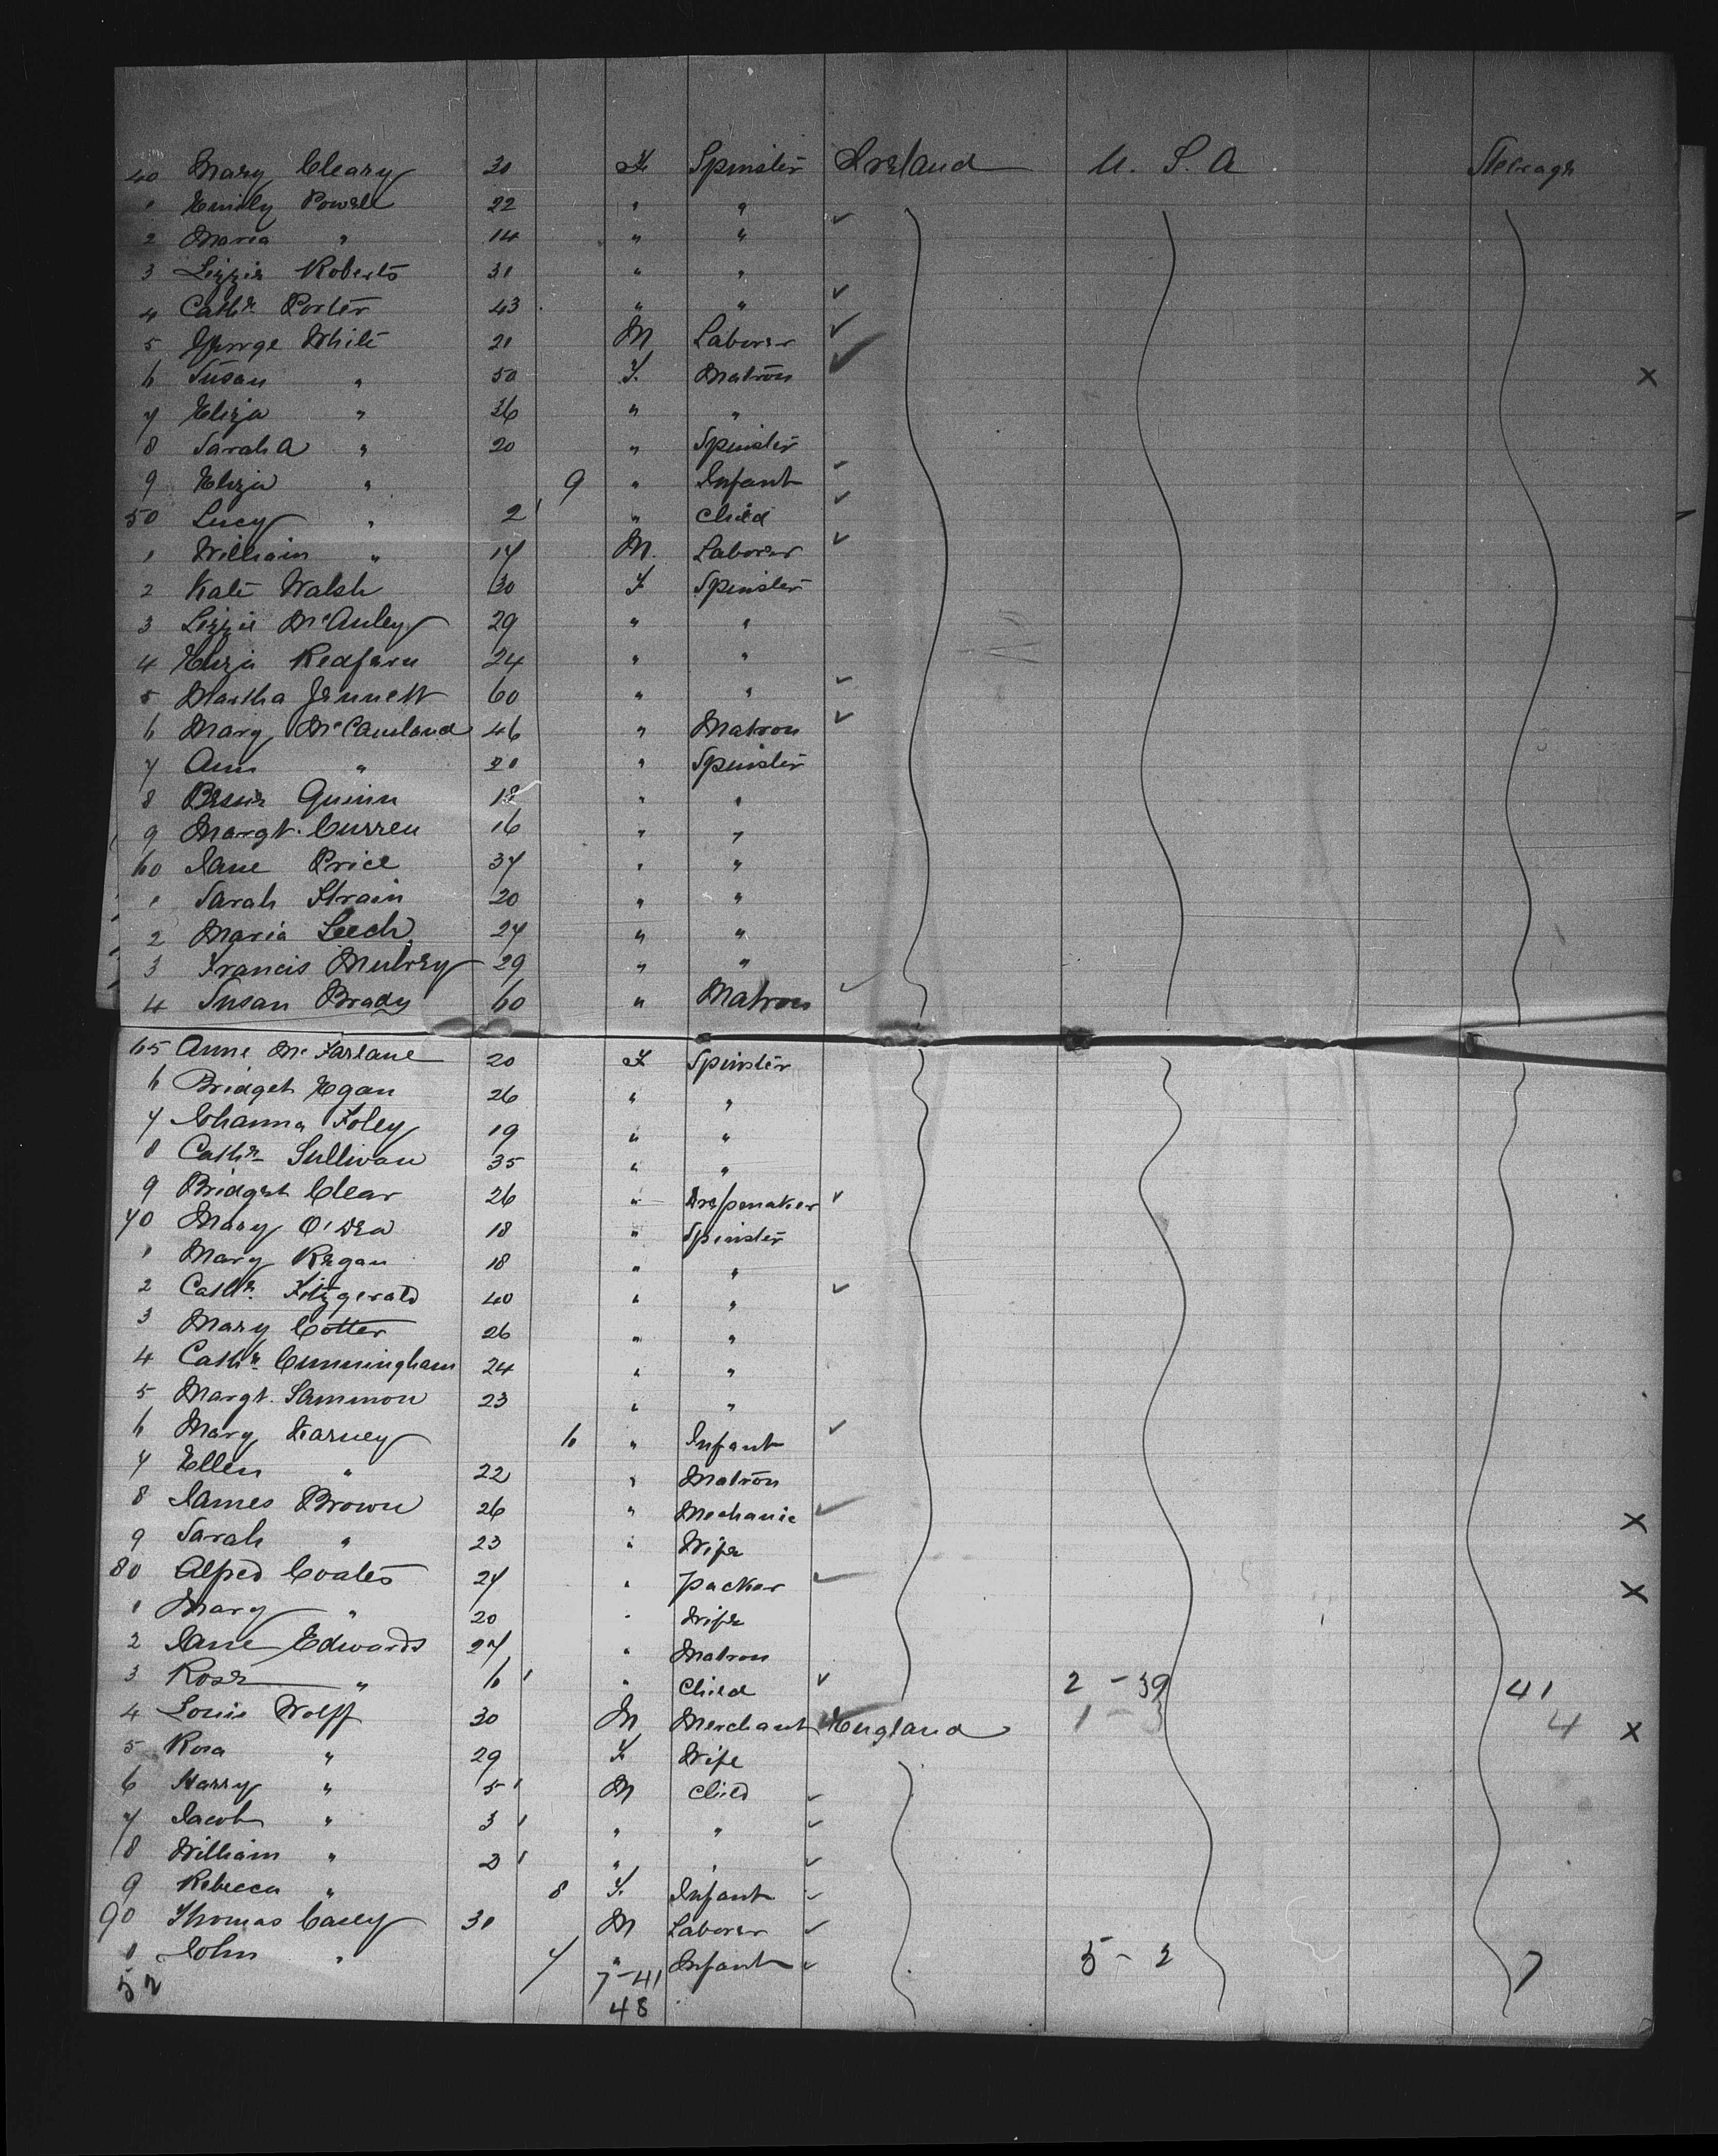 40 Mary Cleary 30 F Spinster Ireland U. S. A Steerage
1 Emily Powell 22 " "
2 Maria " 14 " "
3 Lizzie Roberts 31 " "
4 Cathe Porter 43 " "
5 George White 21 M Laborer
6 Susan " 50 F. Matron
7 Eliza " 36 " "
8 Sarah A " 20 " Spinster
9 Eliza " 9 " Infant
50 Lucy " 2 " Child
1 William " 17 M. Laborer
2 Kate Walsh 30 F Spinster
3 Lizzie McAuley 29 " "
4 Eliza Redfern 24 " "
5 Martha Jennett 60 " "
6 Mary McCausland 46 " Matron
7 Ann " 20 " Spinster
8 Bessie Quinn 18 " "
9 Margt. Curren 16 " "
60 Jane Price 37 " "
1 Sarah Strain 20 " "
2 Maria Leech 27 " "
3 Francis Mulvey 29 " "
4 Susan Brady 60 " Matron
65 Anne McFarlane 20 F Spinster
6 Bridget Egan 26 " "
7 Johanna Foley 19 " "
8 Cathe Sullivan 35 " "
9 Bridget Clear 26 " Dressmaker
70 Mary O'Dea 18 " Spinster
1 Mary Regan 18 " "
2 Cathe. Fitzgerald 40 " "
3 Mary Cotter 26 " "
4 Cathe Cunningham 24 " "
5 Margt. Sammon 23 " "
6 Mary Karney 6 " Infant
7 Ellen " 22 " Matron
8 James Brown 26 " Mechanic
9 Sarah " 23 " Wife
80 Alfred Coates 27 " Packer
1 Mary " 20 " Wife
2 Jane Edwards 27 " Matron
3 Rose " 6 " Child 2 - 39 41
4 Louis Wolff 30 M Merchant England 1 - 3 4
5 Rosa " 29 F Wife
6 Harry " 5 M Child
7 Jacob " 3 " "
8 William " 2 " "
9 Rebecca " 8 F. Infant
90 Thomas Casey 30 M Laborer
1 John " 7 " Infant 5 - 2 7
52 7-41
48